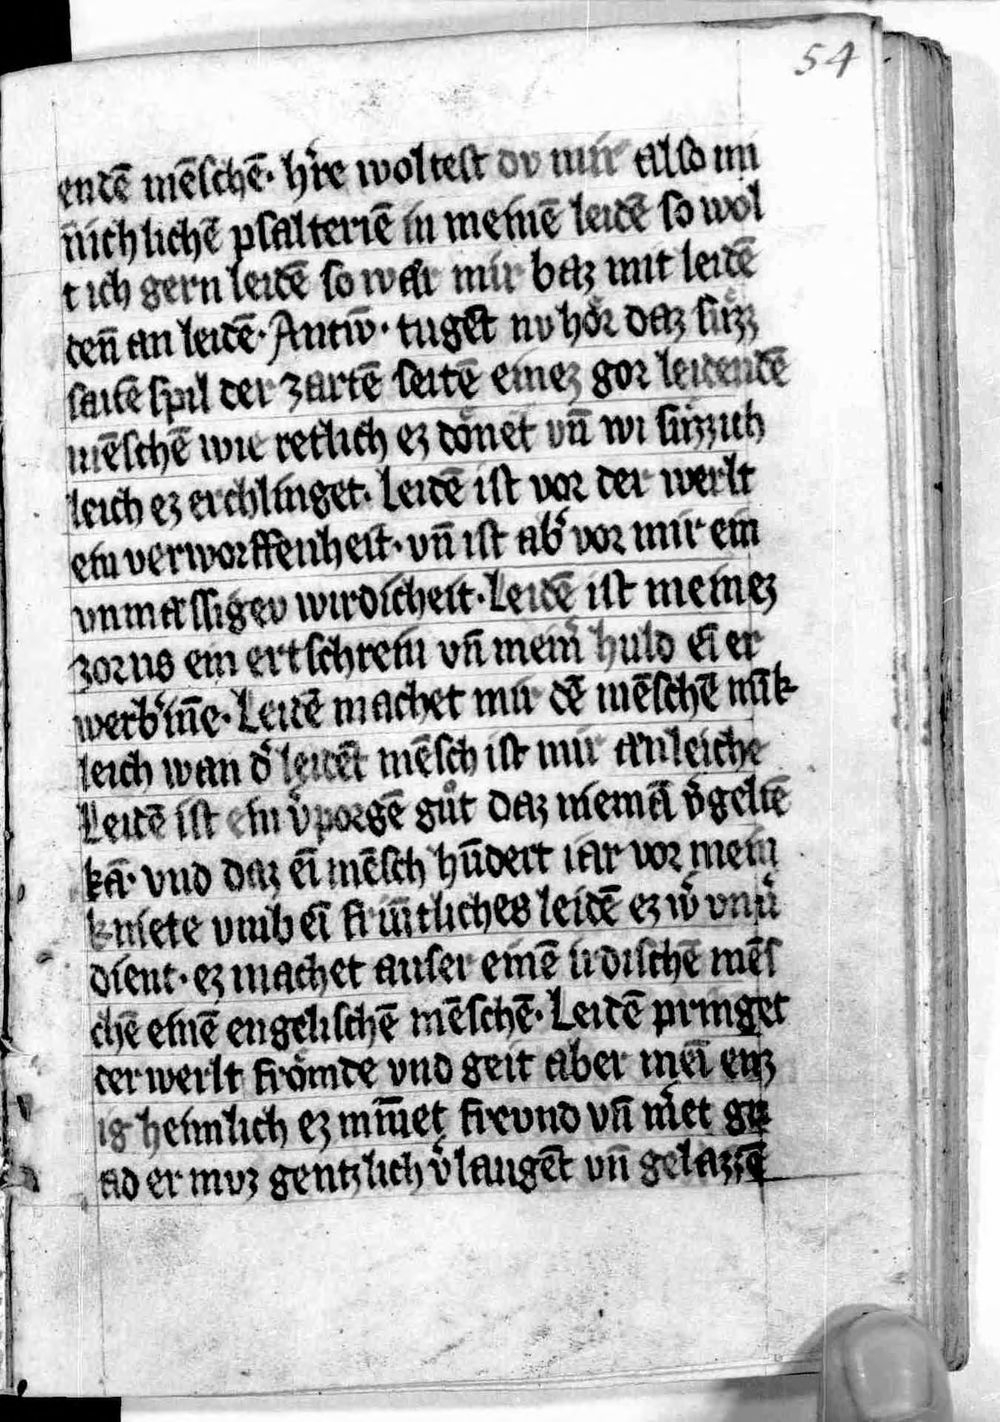 54
endē mēschē· hʼre woltest dv mir also mi
ñichlichē psalteriē in meinē leidē so wol
t ich gern leidē so wͤar mir baz mit leidē
den̄ an leidē· Antw̄· tuget nv hoͤr daz suͤzz
saitē spil der zartē seitē einez gor leidendē
mēschē wie retlich ez doͤnet vn̄ wi suͤzzich
leich ez erchlinget· Leidē ist vor der werlt
ein verworffenheit· vn̄ ist abʼ vor mir ein
vnmͤassigev wirdicheit· Leidē ist meinez
zorns ein ertschrein vn̄ meinʼ huld ei̅ er
werbʼin̄e· Leidē machet mir dē mēschē
leich wan dʼ leidēt mēsch ist mir anleiche
Leidē ist ein vʼporgē guͦt daz niemā vʼgeltē
kā· vnd daz ei̅ mēsch hūdert iar vor mein
kniete vmb ei̅ leidē ez wʼ
dient· ez machet auser einē irdischē mēs
chē einē engelischē mēschē· Leidē pringet
der werlt froͤmde vnd geit aber mei̅ enz
ig heimlich ez mīn̄et frevnd vn̄ mʼet gn
ad er mvz gentzlich vʼlaugēt vn̄ gelazzē